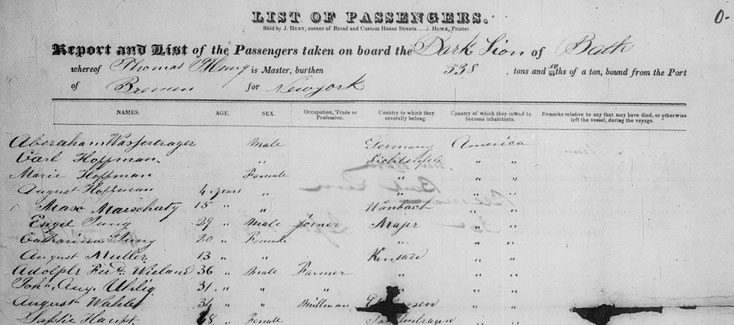 LIST OF PASSENGERS.
Sold by J. HUNT, corner of Broad and Custom House Streets... J. HOWE, Printer.
Report and List of the Passengers taken on board the Bark Sion of Bath
whereof Thomas is Master, burthen 538 tons and ths of a ton, bound from the Port
of Bremen for Newyork
NAMES. AGE. SEX. Occupation, Trade or Profession. Country to which they severally belong. Country of which they intend to become inhabitants. Remarks relative to any that may have died, or otherwise left the vessel, during the voyage.
Aberaham Wassertrager Male Germany America
Carl Hoffman " " "
Marie Hoffman Female " " "
August Hoffman 4 years " " " "
Max Marschaty 15 " " Wanbach " "
Engel Jung 29 " Male farmer Major " "
Catharina Jung 20 " Female " " "
August Muller 13 " " " "
Adolph Ferd. Wieland 36 " Male Farmer " "
Joh. Aug. Uhlig 31 " " " "
August Wahle 34 " Millman " "
Sophie Haupt 48 " Female " "